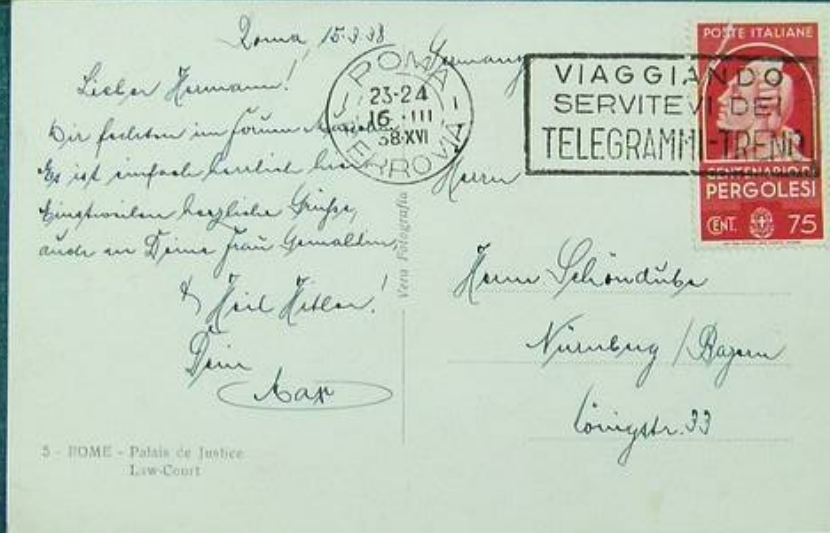 Roma, 15.3.38
Lieber Hermann!
Wir fechten im Forum
Es ist einfach herrlich hier
Einstweilen herzliche Grüße,
auch an Deine Frau Gemahlin,
& Heil Hitler!
Dein
Max
5 - ROME - Palais de Justice
Law-Court
Vera Fotografia
ROMA
FERROVIA
23-24
16 · III
38·XVI
Germany
VIAGGIANDO
SERVITEVI DEI
TELEGRAMMI-TRENO
POSTE ITALIANE
CENTENARIO DI
PERGOLESI
CENT. 75
Herrn
Herm Schöndube
Nürnberg / Bayern
Königstr. 33